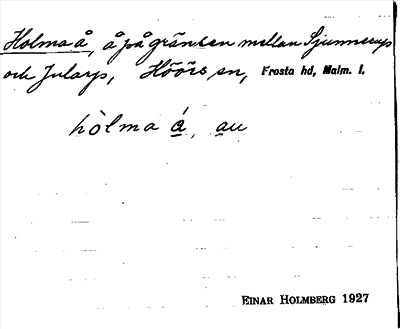 Holma å, å på gränsen mellan Sjunnerup
och Jularp, Höörs sn, Frosta hd, Malm. l.
hòlma á, au
EINAR HOLMBERG 1927